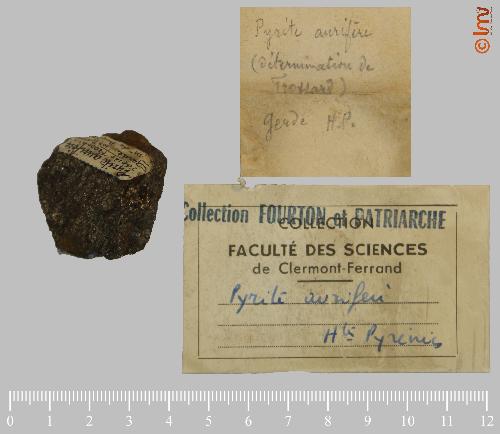 Pyrite aurifère
(détermination de
Frossard)
Gerde H.P.
Collection FOURTON et PATRIARCHE
COLLECTION
FACULTÉ DES SCIENCES
de Clermont-Ferrand
Pyrite aurifère
Htes Pyrénées
©lmv
0 1 2 3 4 5 6 7 8 9 10 11 12